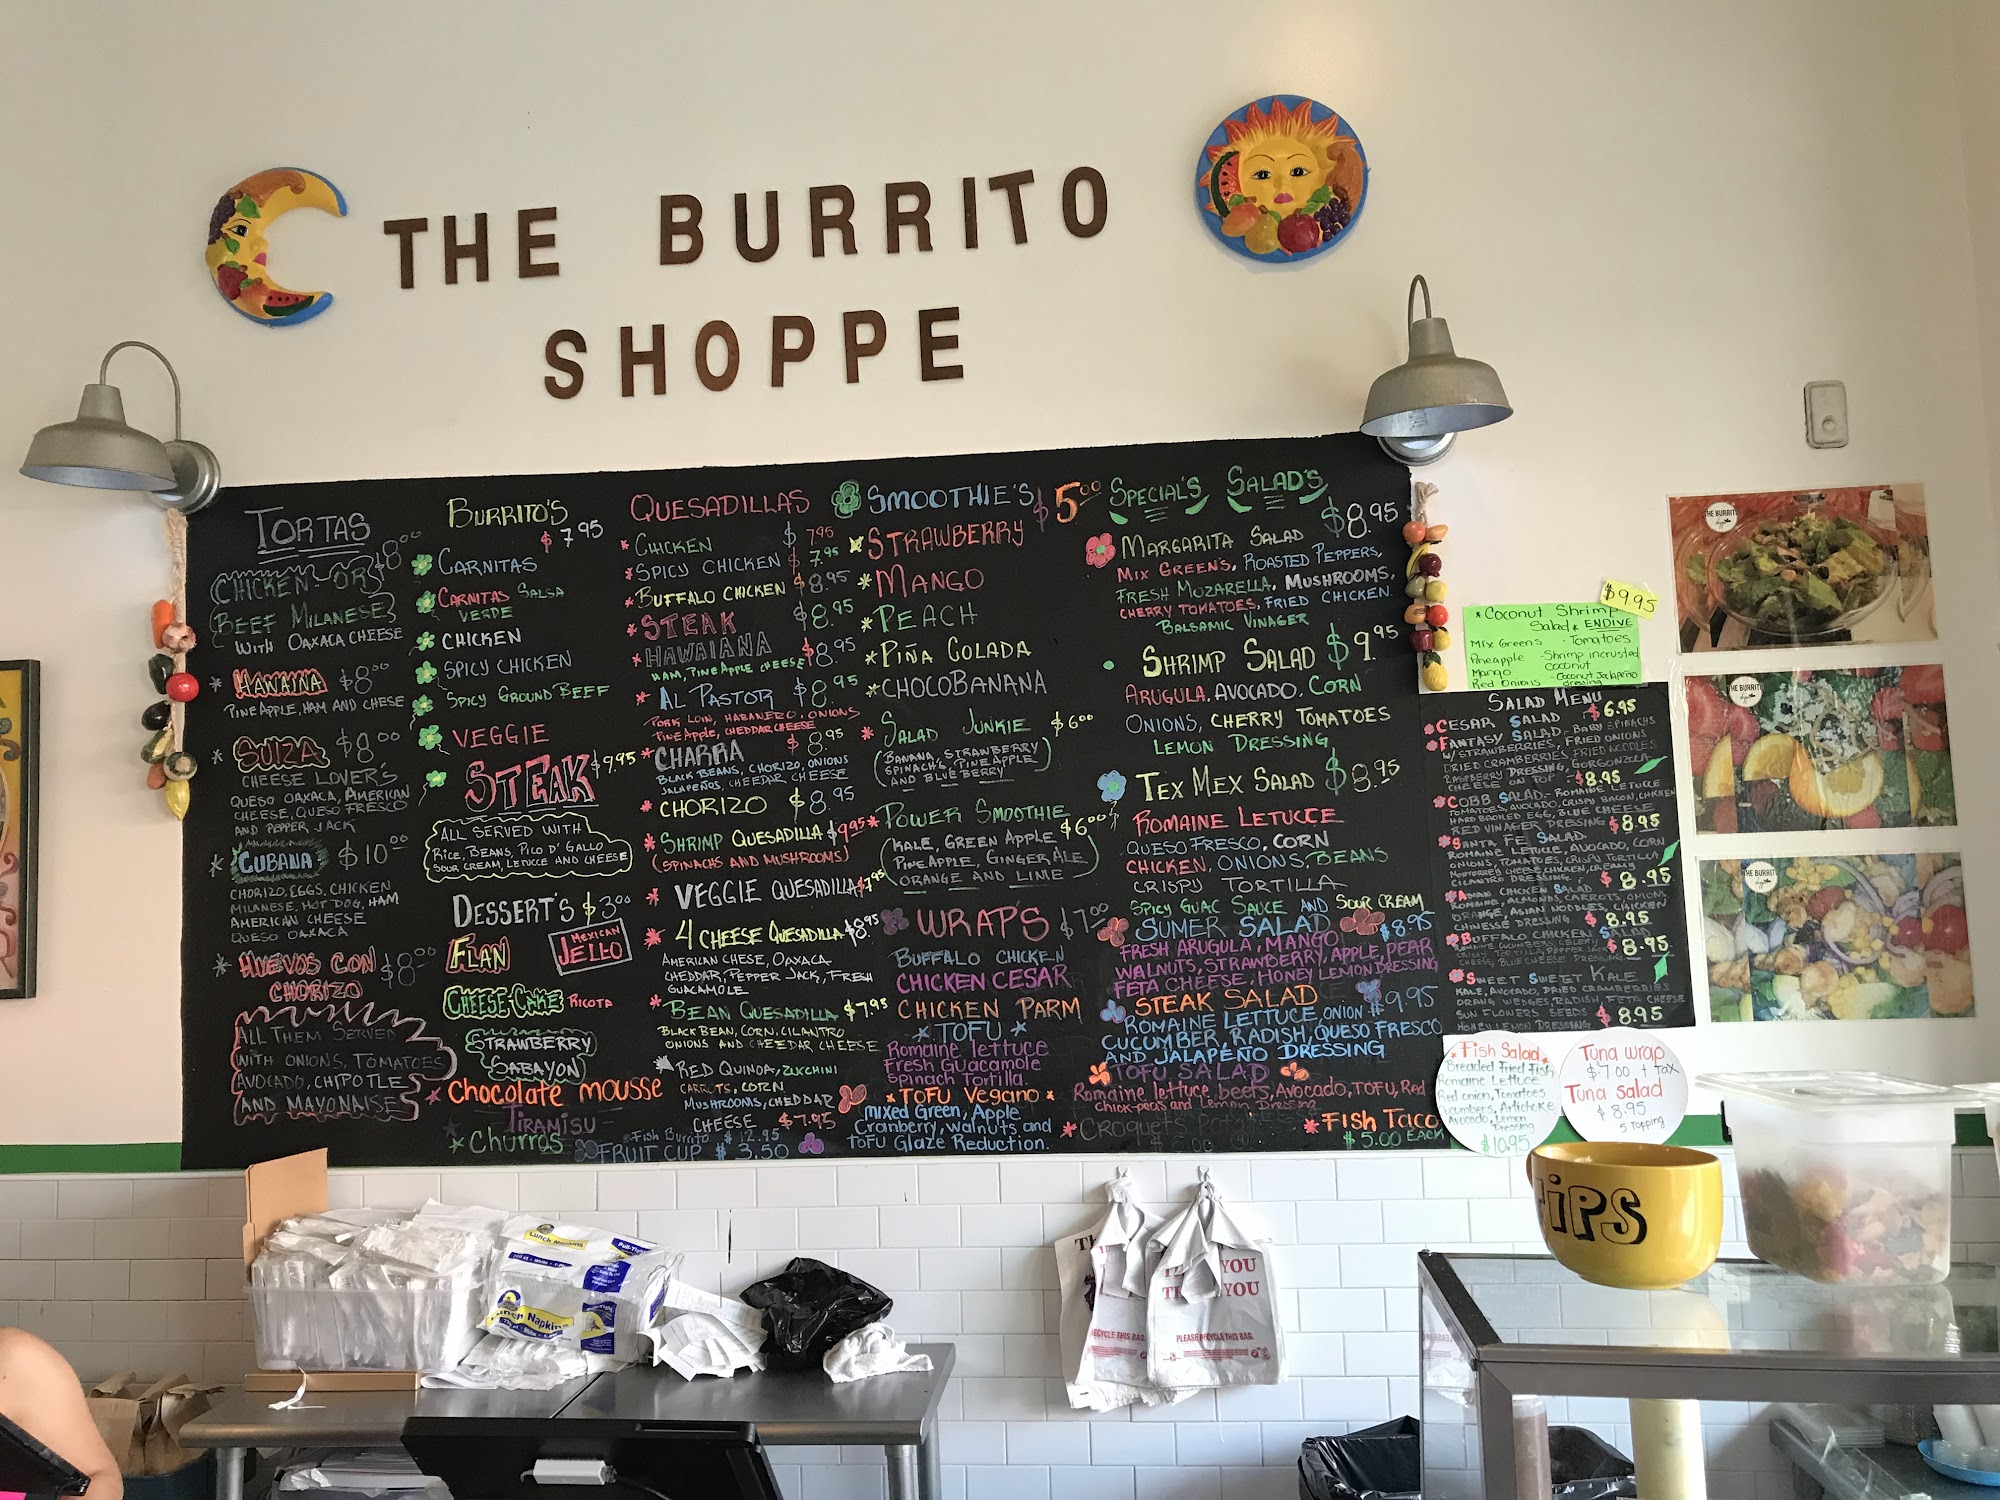 THE BURRITO
SHOPPE
TORTAS
$8.00
CHICKEN OR
BEEF MILANESE
WITH OAXACA CHEESE
* HAWAINA $8.00
PINEAPPLE, HAM AND CHESE
* SUIZA $8.00
CHEESE LOVER'S
QUESO OAXACA, AMERICAN
CHEESE, QUESO FRESCO
AND PEPPER JACK
* CUBANA $10.00
CHORIZO, EGGS, CHICKEN
MILANESE, HOT DOG, HAM
AMERICAN CHEESE
QUESO OAXACA
* HUEVOS CON $8.00
CHORIZO
ALL THEM SERVED
WITH ONIONS, TOMATOES
AVOCADO, CHIPOTLE
AND MAYONAISE
BURRITO'S
$7.95
CARNITAS
CARNITAS SALSA
VERDE
CHICKEN
SPICY CHICKEN
SPICY GROUND BEEF
VEGGIE
STEAK $9.95
ALL SERVED WITH
RICE, BEANS, PICO D' GALLO
SOUR CREAM, LETUCE AND CHEESE
DESSERT'S $3.00
FLAN
MEXICAN
JELLO
CHEESE-CAKE RICOTA
STRAWBERRY
SABAYON
* Chocolate mousse
TIRAMISU
* Churros
QUESADILLAS
* CHICKEN $7.95
* SPICY CHICKEN $7.95
* BUFFALO CHICKEN $8.95
* STEAK $8.95
* HAWAIANA $8.95
HAM, PINEAPPLE CHEESE
* AL PASTOR $8.95
PORK LOIN, HABANERO, ONIONS
PINEAPPLE, CHEDDAR CHEESE
* CHARRA $8.95
BLACK BEANS, CHORIZO, ONIONS
JALAPEÑOS, CHEEDAR CHEESE
* CHORIZO $8.95
* SHRIMP QUESADILLA $9.95
(SPINACHS AND MUSHROOMS)
* VEGGIE QUESADILLA $7.95
* 4 CHEESE QUESADILLA $8.95
AMERICAN CHESE, OAXACA
CHEDDAR, PEPPER JACK, FRESH
GUACAMOLE
* BEAN QUESADILLA $7.95
BLACK BEAN, CORN, CILANTRO
ONIONS AND CHEEDAR CHEESE
RED QUINOA, ZUKCHINI
CARROTS, CORN
MUSHROOMS, CHEDDAR
CHEESE $7.95
* Fish Burrito $12.95
FRUIT CUP $3.50
SMOOTHIE'S $5.00
* STRAWBERRY
* MANGO
* PEACH
* PIÑA COLADA
* CHOCOBANANA
* SALAD JUNKIE $6.00
(BANANA, STRAWBERRY
SPINACH'S, PINEAPPLE
AND BLUEBERRY)
* POWER SMOOTHIE
$6.00
(KALE, GREEN APPLE
PINEAPPLE, GINGER ALE
ORANGE AND LIME)
WRAPS $7.00
BUFFALO CHICKEN
CHICKEN CESAR
CHICKEN PARM
* TOFU *
Romaine lettuce
Fresh Guacamole
Spinach Tortilla.
* TOFU VEGANO *
mixed Green, Apple
Cranberry, walnuts and
TOFU Glaze Reduction.
SPECIAL'S SALAD'S
MARGARITA SALAD $8.95
MIX GREEN'S, ROASTED PEPPERS,
FRESH MOZARELLA, MUSHROOMS,
CHERRY TOMATOES, FRIED CHICKEN.
BALSAMIC VINAGER
SHRIMP SALAD $9.95
ARUGULA, AVOCADO, CORN
ONIONS, CHERRY TOMATOES
LEMON DRESSING
TEX MEX SALAD $8.95
ROMAINE LETUCCE
QUESO FRESCO, CORN
CHICKEN, ONIONS, BEANS
CRISPY TORTILLA
SPICY GUAC SAUCE AND SOUR CREAM
SUMER SALAD $8.95
FRESH ARUGULA, MANGO
WALNUTS, STRAWBERRY, APPLE, PEAR
FETA CHEESE, HONEY LEMON DRESSING
STEAK SALAD $9.95
ROMAINE LETTUCE, ONION
CUCUMBER, RADISH, QUESO FRESCO
AND JALAPEÑO DRESSING
TOFU SALAD
Romaine lettuce, beets, Avocado, TOFU, Red
Chick-peas and Lemon Dressing
* Croquets
* Fish Taco
$5.00 EACH
$9.95
* Coconut Shrimp
Salad & ENDIVE
Mix Greens - Tomatoes
Pineapple - Shrimp incrusted
Mango coconut
Red Onions - Coconut Jalapeño
dressing
SALAD MENU
CESAR SALAD $6.95
FANTASY SALAD - BABY SPINACHS
W/ STRAWBERRIES, FRIED ONIONS
DRIED CRAMBERRIES, FRIED NOODLES
RASPBERRY DRESSING, GORGONZOLA
CHEESE ON TOP $8.95
COBB SALAD - ROMAINE LETUCE
TOMATOES, AVOCADO, CRISPY BACON, CHICKEN
HARD BROILED EGG, BLUE CHEESE
RED VINAGER DRESSING $8.95
SANTA FE SALAD
ROMAINE LETUCE, AVOCADO, CORN
ONIONS, TOMATOES, CRISPY TORTILLA
MONTERREY CHEESE, CHICKEN, CREAMY
CILANTRO DRESSING. $8.95
ASIAN CHICKEN SALAD
ROMAINE, ALMONDS, CARROTS, ONIONS
ORANGE, ASIAN NOODLES, CHICKEN
CHINESSE DRESSING $8.95
BUFFALO CHICKEN SALAD
$8.95
SWEET SWEET KALE
KALE, AVOCADO, DRIED CRAMBERRIES
ORANG WEDGES, RADISH, FETA CHEESE
SUN FLOWERS SEEDS $8.95
HONEY LEMON DRESSING
* Fish Salad *
Breaded Fried Fish
Romaine Lettuce
Red onion, Tomatoes
Cucumbers, Artichoke
Avocado, Lemon
Dressing
$10.95
Tuna wrap
$7.00 + tax
Tuna salad
$8.95
5 topping
THE BURRITO
Shoppe
THE BURRITO
THE BURRIT
Shoppe
TIPS
Lunch Napkins
Pull-Tight
Lunch Napkins
THANK YOU
THANK YOU
RECYCLE THIS BAG
PLEASE RECYCLE THIS BAG.